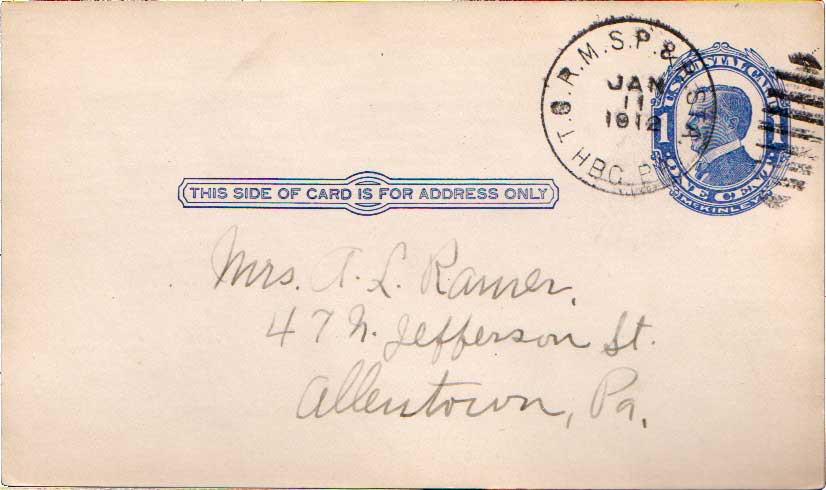 T.&.R.M.S.P.& F. STA. HBG. P
JAN
11
1912
U.S. POSTAL CARD
1 1
ONE CENT
McKINLEY
THIS SIDE OF CARD IS FOR ADDRESS ONLY
Mrs. A. L. Ramer,
47 N. Jefferson St.
Allentown, Pa.